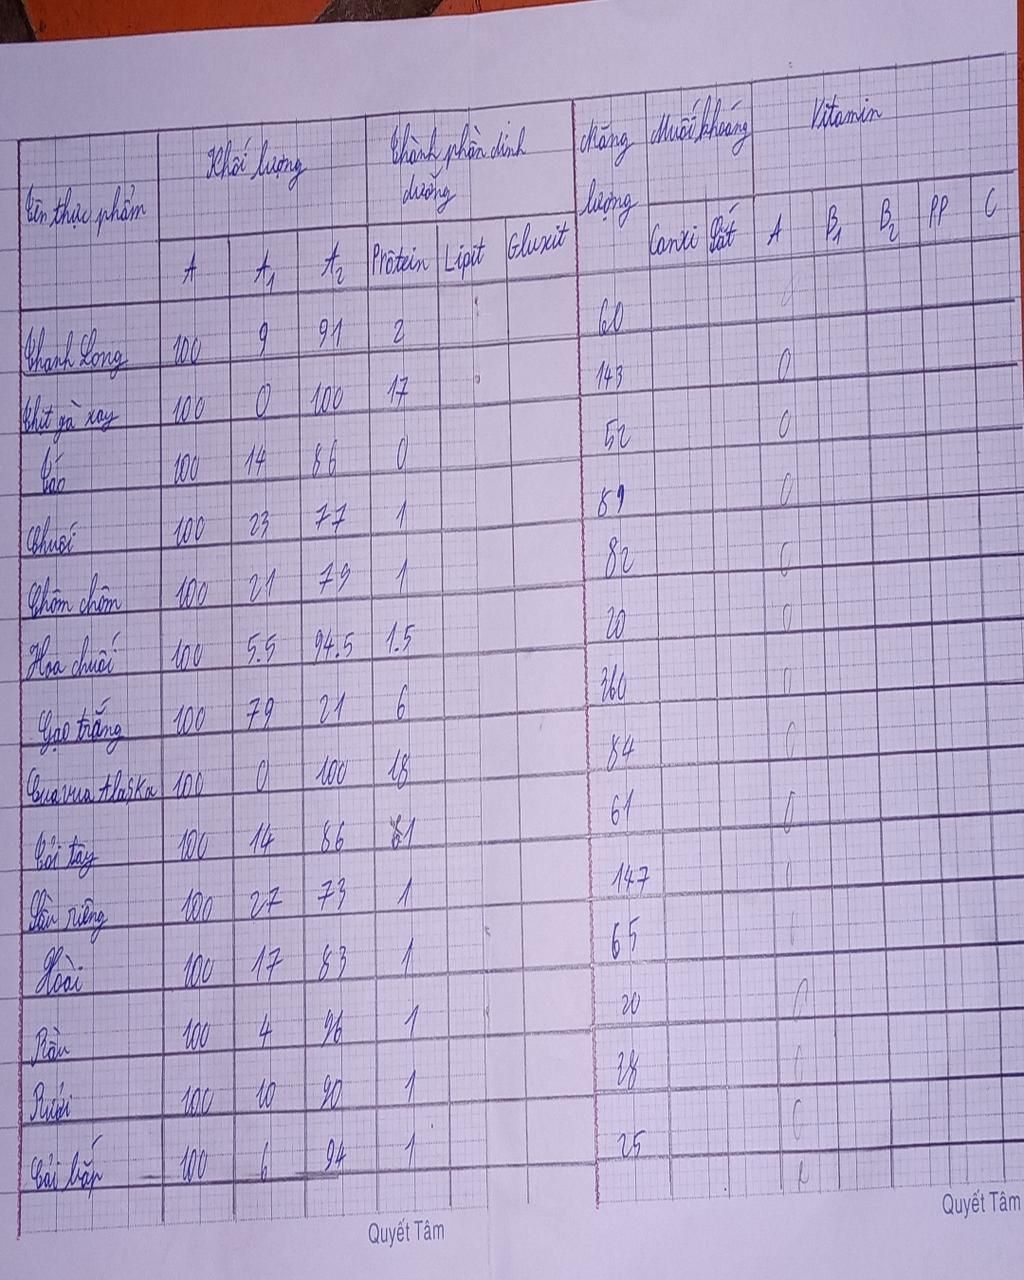 Tên thực phẩm Khối lượng Thành phần dinh dưỡng Năng lượng Muối khoáng Vitamin
A A1 A2 Protein Lipit Gluxit Canxi Sắt A B1 B2 PP C
Thanh Long 100 9 91 2 60
Thịt gà xay 100 0 100 17 143 0
Táo 100 14 86 0 52 0
Chuối 100 23 77 1 89 0
Chôm chôm 100 21 79 1 82 0
Hoa chuối 100 5.5 94.5 1.5 20 0
Gạo trắng 100 79 21 6 360 0
Cua vua Alaska 100 0 100 18 84 0
Tỏi tây 100 14 86 1 61 0
Sầu riêng 100 27 73 1 147 0
Xoài 100 17 83 1 65
100 4 96 1 20 0
100 10 90 1 38 0
Cải bắp 100 6 94 1 25 0
Quyết Tâm
Quyết Tâm